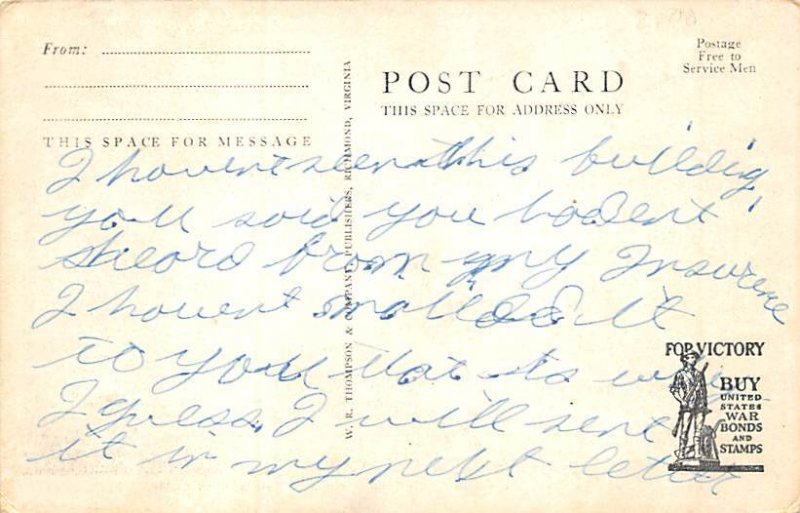 From:
Postage
Free to
Service Men
POST CARD
THIS SPACE FOR ADDRESS ONLY
THIS SPACE FOR MESSAGE
W. R. THOMPSON & COMPANY, PUBLISHERS, RICHMOND, VIRGINIA
I havent seen this buildig,
you said you hadent
heard from my Insurene
I havent mailded it
to you that is why
I guess. I will sent
it in my next letter
FOR VICTORY
BUY
UNITED
STATES
WAR
BONDS
AND
STAMPS